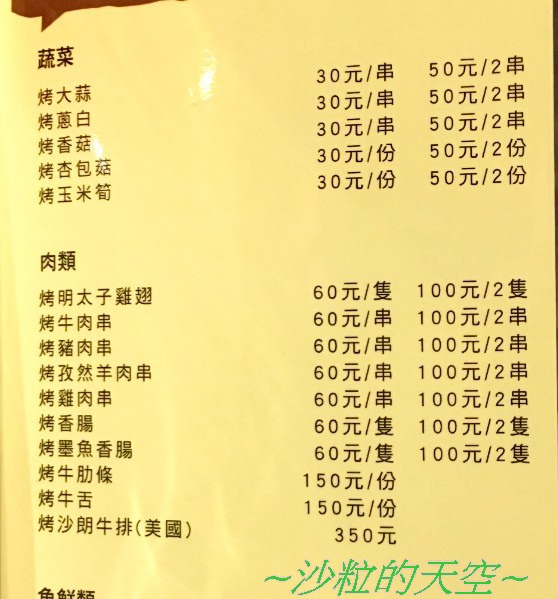 蔬菜
烤大蒜 30元/串 50元/2串
烤蔥白 30元/串 50元/2串
烤香菇 30元/串 50元/2串
烤杏包菇 30元/份 50元/2份
烤玉米筍 30元/份 50元/2份
肉類
烤明太子雞翅 60元/隻 100元/2隻
烤牛肉串 60元/串 100元/2串
烤豬肉串 60元/串 100元/2串
烤孜然羊肉串 60元/串 100元/2串
烤雞肉串 60元/串 100元/2串
烤香腸 60元/隻 100元/2隻
烤墨魚香腸 60元/隻 100元/2隻
烤牛肋條 150元/份
烤牛舌 150元/份
烤沙朗牛排(美國) 350元
魚鮮類
~沙粒的天空~